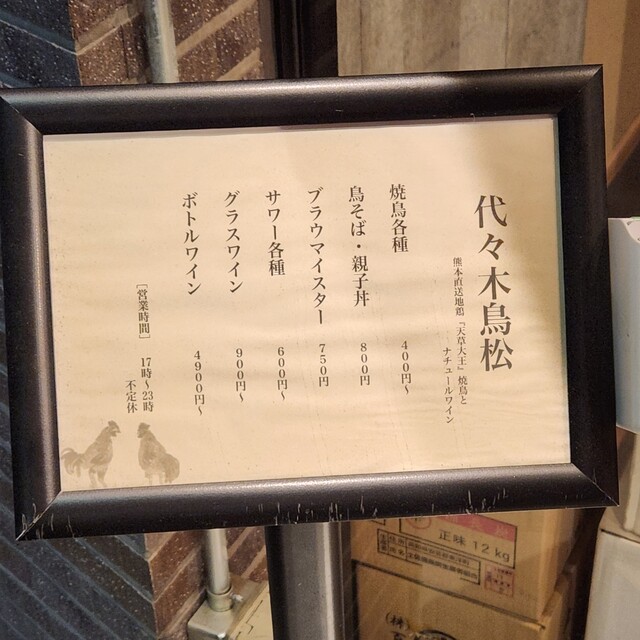 代々木鳥松
熊本直送地鶏「天草大王」焼鳥と
ナチュールワイン
焼鳥各種 400円〜
鳥そば・親子丼 800円
ブラウマイスター 750円
サワー各種 600円〜
グラスワイン 900円〜
ボトルワイン 4900円〜
［営業時間］ 17時〜23時
不定休
正味 12kg